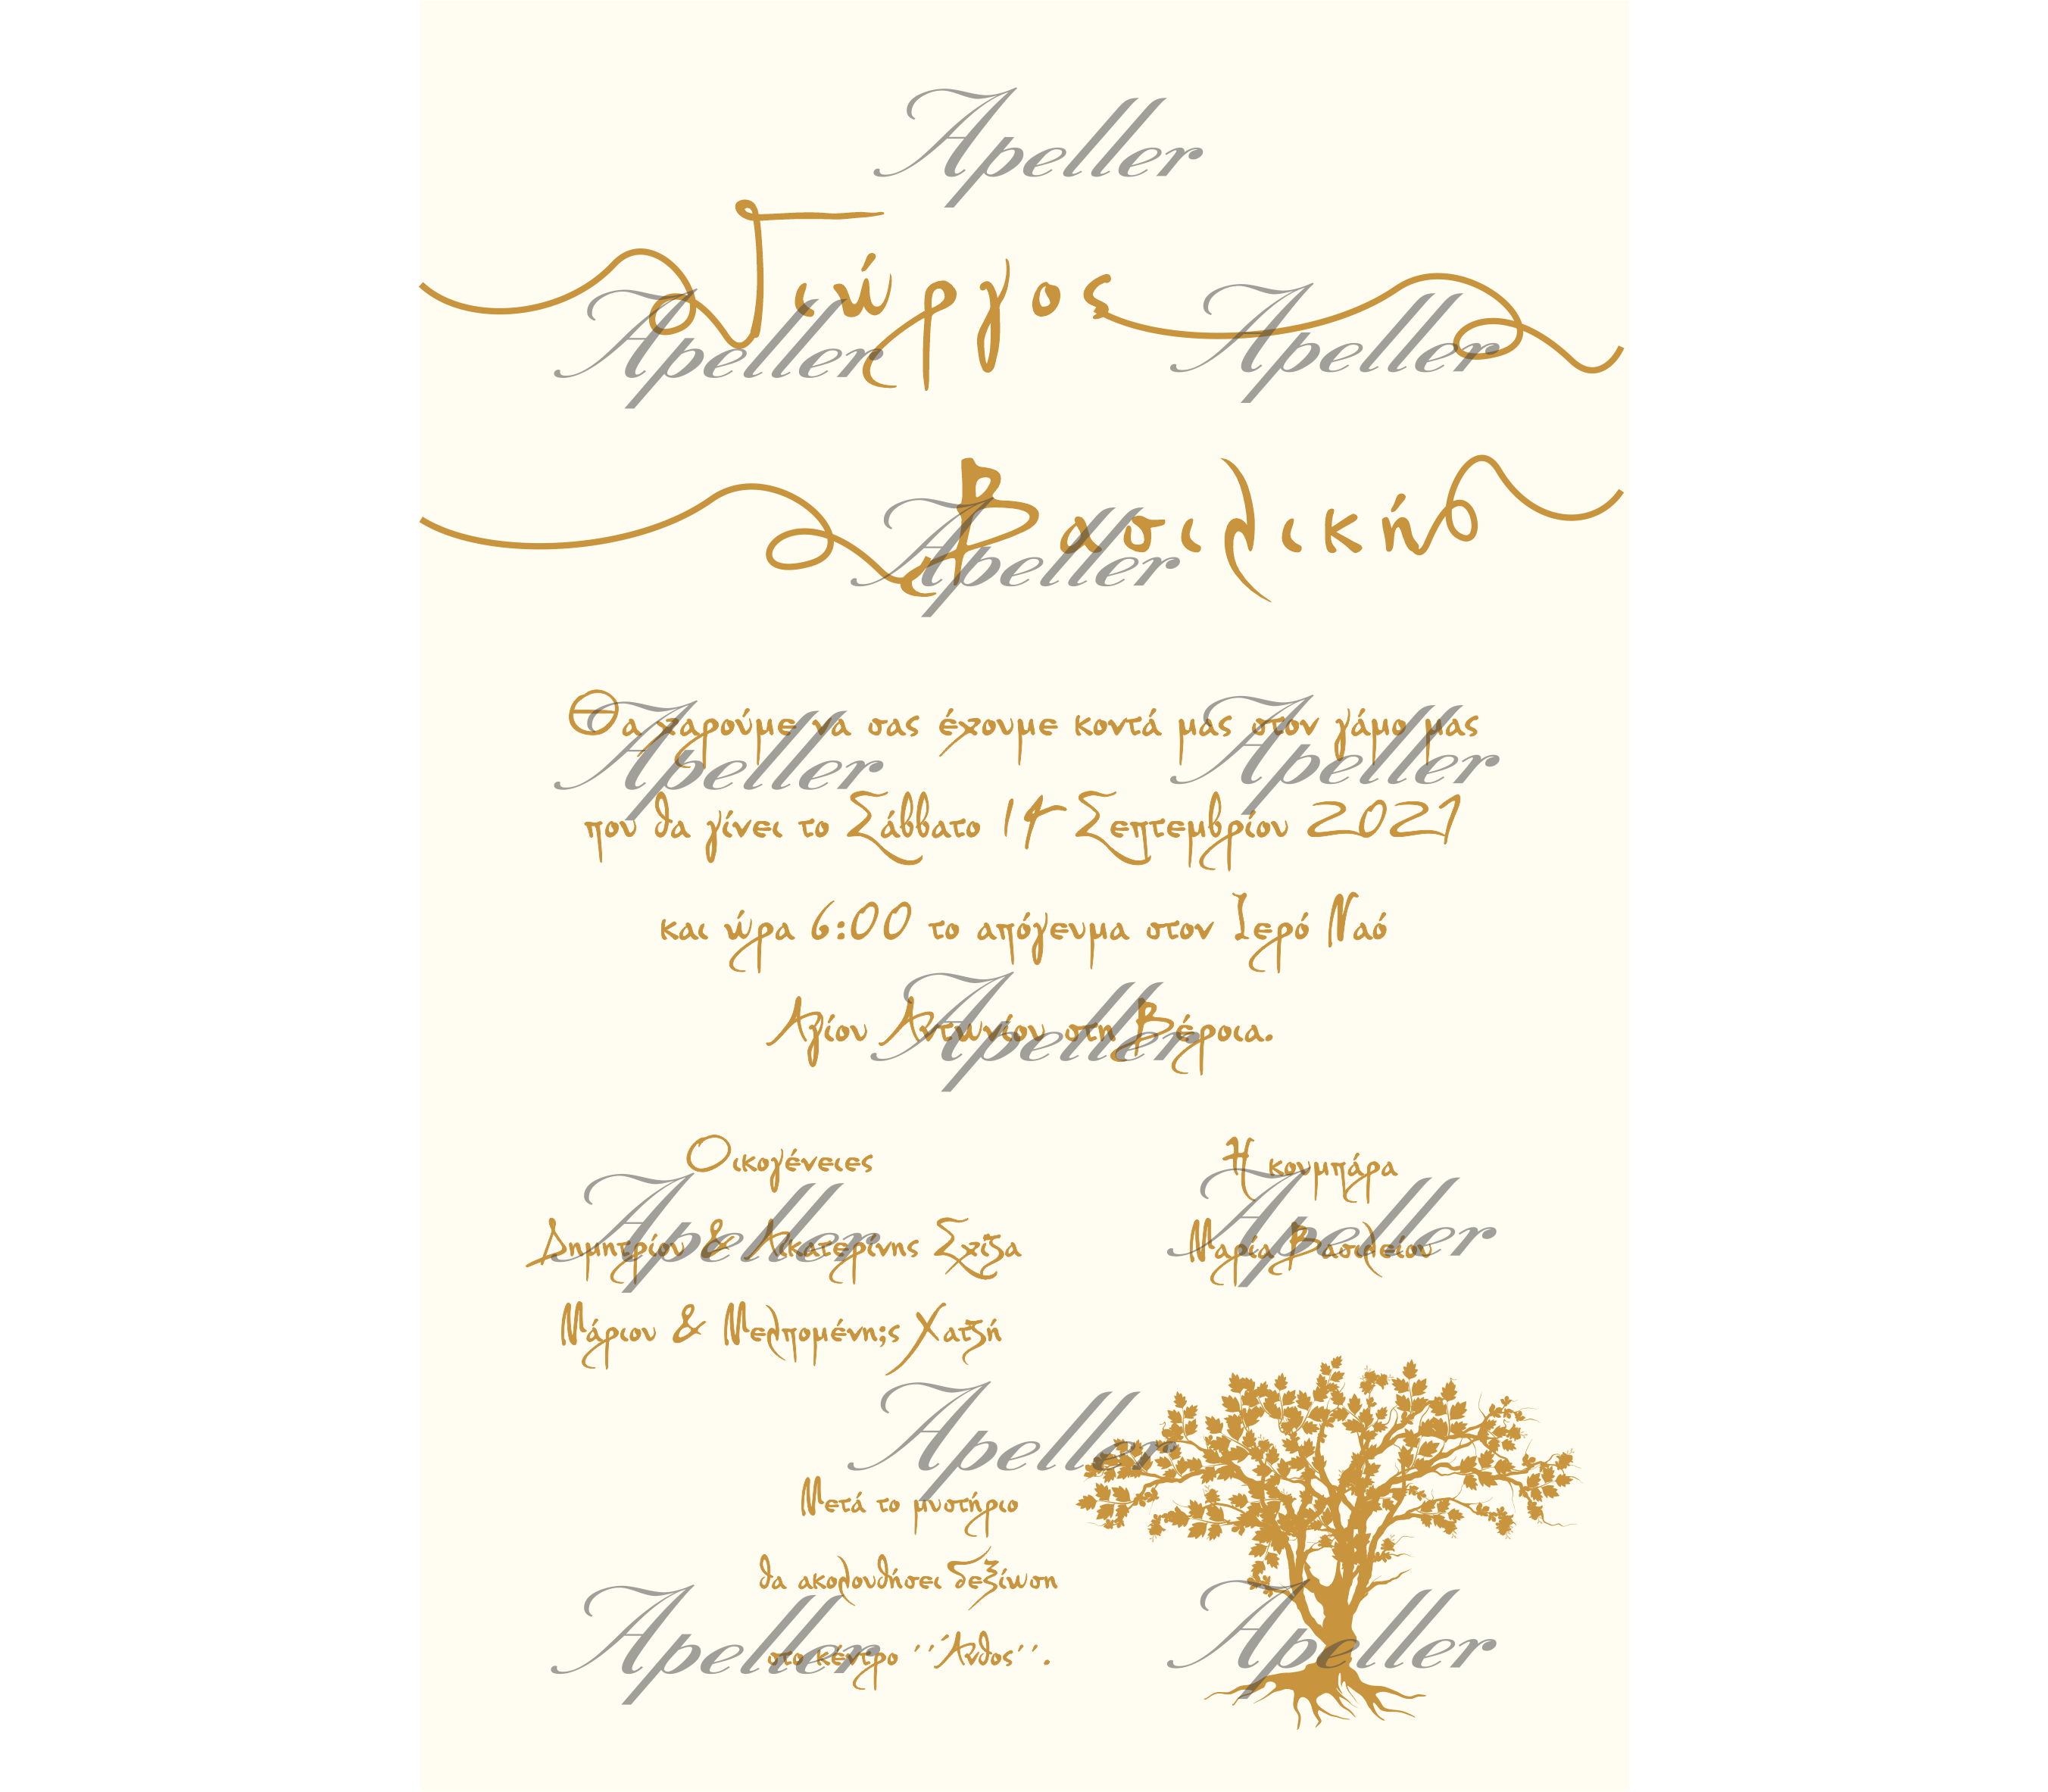 Apeller
Γιώργος
Apeller Apeller
Βασιλική
Apeller
Θα χαρούμε να σας έχουμε κοντά μας στον γάμο μας
Apeller Apeller
που θα γίνει το Σάββατο Σεπτεμβρίου
και ώρα 6:00 το απόγευμα στον Ιερό Ναό
Αγίου Αντωνίου στη Βέροια.
Apeller
Οικογένειες
Η κουμπάρα
Apeller Apeller
Δημητρίου & Αικατερίνης Σχίζα
Μαρία Βασιλείου
Μάριου & Μελπομένη;ς Χατζή
Apeller
Μετά το μυστήριο
θα ακολουθήσει δεξίωση
στο κέντρο ''Άνθος''.
Apeller Apeller